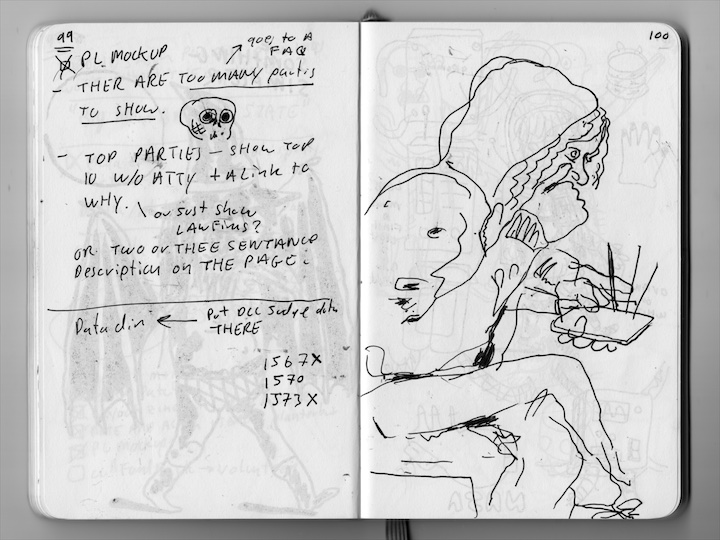 99
PL MOCKUP
goes to a
FAQ
- THER ARE TOO MANY partis
TO SHOW.
- TOP PARTIES - SHOW TOP
10 W/O ATTY + A LINK TO
WHY.
\ or Just Show
LAWFIRMS?
OR TWO OR THEE SENTANCE
Description on THE PAGE.
Put DCC data
THERE
1567X
1570
1573X
100